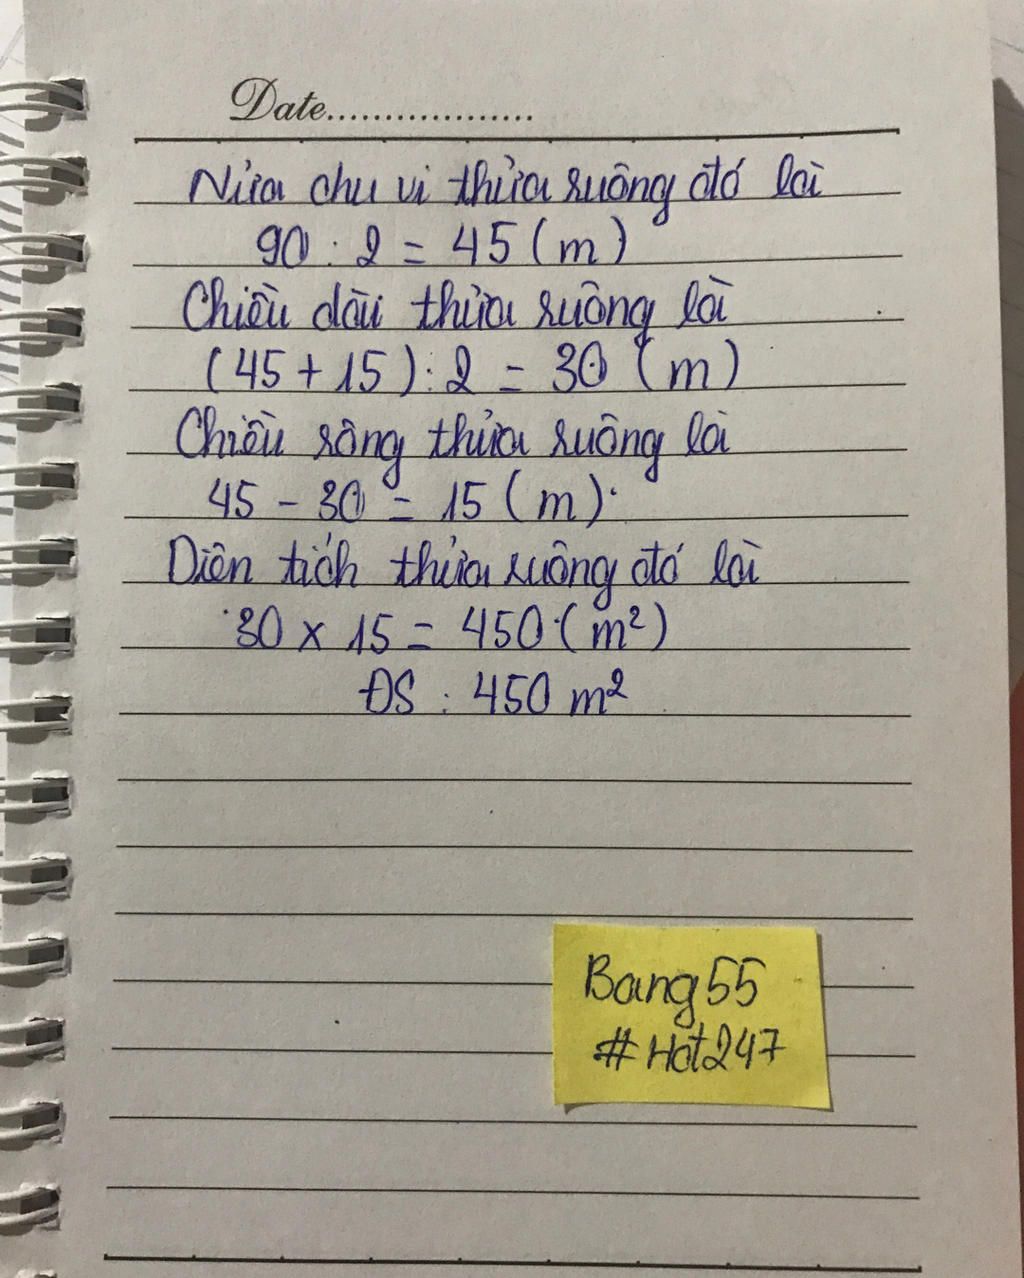 Date..................
Nửa chu vi thửa ruộng đó là
90 : 2 = 45 (m)
Chiều dài thửa ruộng là
(45 + 15) : 2 = 30 (m)
Chiều rộng thửa ruộng là
45 - 30 = 15 (m)
Diện tích thửa ruộng đó là
30 x 15 = 450 (m²)
ĐS : 450 m²
Bang55
#Hot247